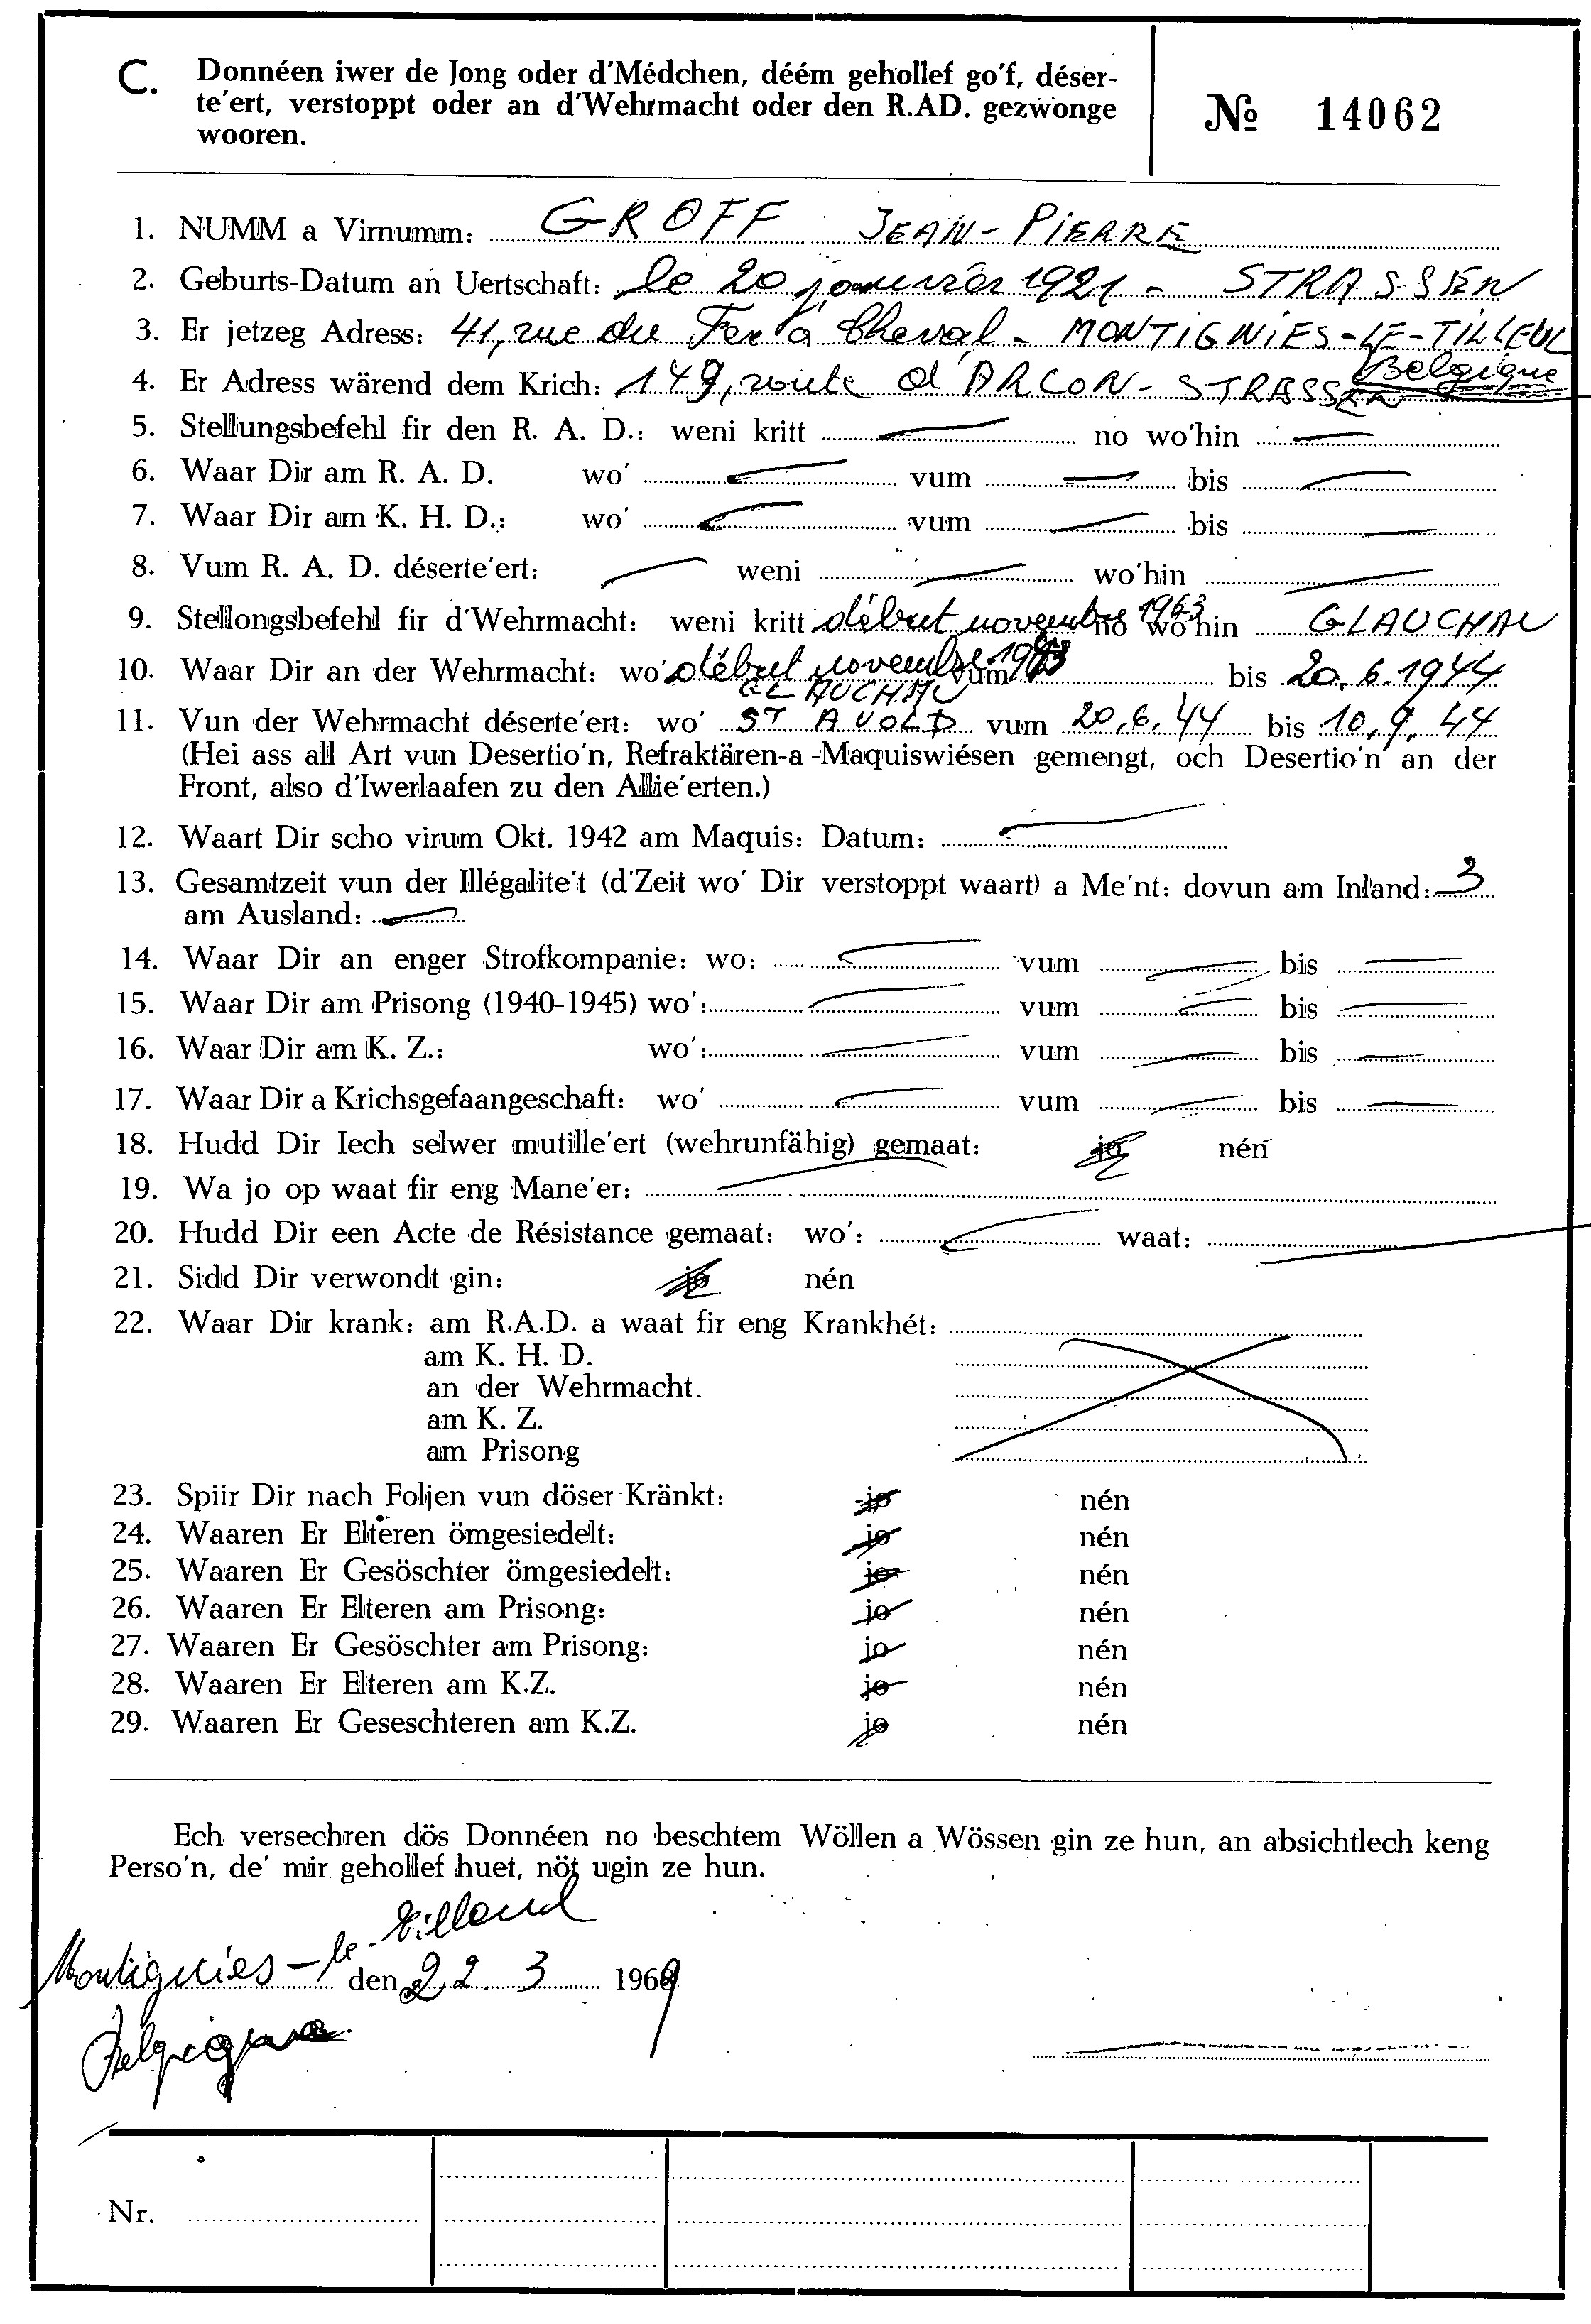 C. Donnéen iwer de Jong oder d'Médchen, déém gehollef go'f, déser-
te'ert, verstoppt oder an d'Wehrmacht oder den R.AD. gezwonge
wooren.
№ 14062
1. NUMM a Virnumm: GROFF JEAN-PIERRE
2. Geburts-Datum an Uertschaft: le 20 janvier 1921 - STRASSEN
3. Er jetzeg Adress: 41, rue du Fer à Cheval - MONTIGNIES-LE-TILLEUL
Belgique
4. Er Adress wärend dem Krich: 149, route d'ARLON - STRASSEN
5. Stellungsbefehl fir den R. A. D.: weni kritt no wo'hin
6. Waar Dir am R. A. D. wo' vum bis
7. Waar Dir am K. H. D.: wo' vum bis
8. Vum R. A. D. déserte'ert: weni wo'hin
9. Stellongsbefehl fir d'Wehrmacht: weni kritt début novembre 1943 no wo'hin GLAUCHAU
10. Waar Dir an der Wehrmacht: wo' début novembre 1943 vum bis 20.6.1944
GLAUCHAU
11. Vun der Wehrmacht déserte'ert: wo' ST AVOLD vum 20.6.44 bis 10.9.44
(Hei ass all Art vun Desertio'n, Refraktären-a-Maquiswiésen gemengt, och Desertio'n an der
Front, also d'Iwerlaafen zu den Allie'erten.)
12. Waart Dir scho virum Okt. 1942 am Maquis: Datum:
13. Gesamtzeit vun der Illégalite't (d'Zeit wo' Dir verstoppt waart) a Me'nt: dovun am Inland: 3
am Ausland:
14. Waar Dir an enger Strofkompanie: wo: vum bis
15. Waar Dir am Prisong (1940-1945) wo': vum bis
16. Waar Dir am K. Z.: wo': vum bis
17. Waar Dir a Krichsgefaangeschaft: wo' vum bis
18. Hudd Dir Iech selwer mutille'ert (wehrunfähig) gemaat: jo nén
19. Wa jo op waat fir eng Mane'er:
20. Hudd Dir een Acte de Résistance gemaat: wo': waat:
21. Sidd Dir verwondt gin: jo nén
22. Waar Dir krank: am R.A.D. a waat fir eng Krankhét:
am K. H. D.
an der Wehrmacht.
am K. Z.
am Prisong
23. Spiir Dir nach Foljen vun döser Kränkt: jo nén
24. Waaren Er Elteren ömgesiedelt: jo nén
25. Waaren Er Gesöschter ömgesiedelt: jo nén
26. Waaren Er Elteren am Prisong: jo nén
27. Waaren Er Gesöschter am Prisong: jo nén
28. Waaren Er Elteren am K.Z. jo nén
29. Waaren Er Geseschteren am K.Z. jo nén
Ech versechren dös Donnéen no beschtem Wöllen a Wössen gin ze hun, an absichtlech keng
Perso'n, de' mir gehollef huet, nöt ugin ze hun.
Montignies-le-Tilleul
den 22 3 1969
Belgique
Nr.